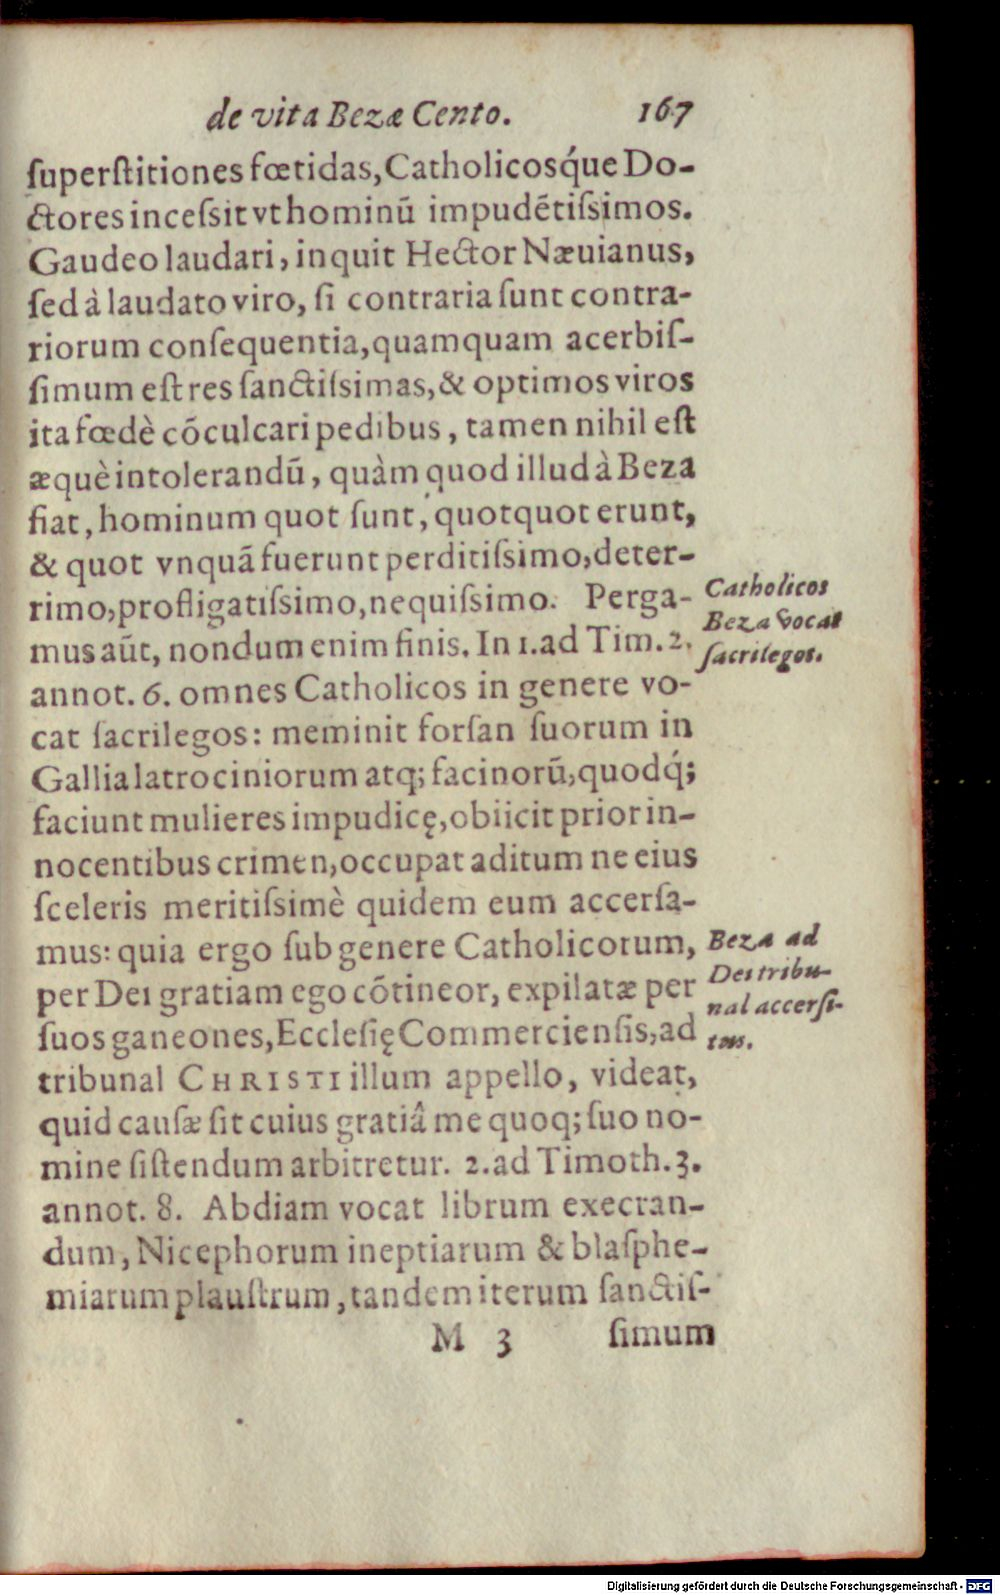 de vita Bezæ Cento. 167
ſuperſtitiones fœtidas, Catholicosq́ue Do-
ctores inceſsit vt hominū impudētiſsimos.
Gaudeo laudari, inquit Hector Næuianus,
ſed à laudato viro, ſi contraria ſunt contra-
riorum conſequentia, quamquam acerbiſ-
ſimum eſt res ſanctiſsimas, & optimos viros
ita fœdè cōculcari pedibus, tamen nihil eſt
æquè intolerandū, quàm quod illud à Beza
fiat, hominum quot ſunt, quotquot erunt,
& quot vnquā fuerunt perditiſsimo, deter-
rimo, profligatiſsimo, nequiſsimo. Perga-
mus aūt, nondum enim finis. In 1. ad Tim. 2.
Catholicos
Beza vocat
ſacrilegos.
annot. 6. omnes Catholicos in genere vo-
cat ſacrilegos: meminit forſan ſuorum in
Gallia latrociniorum atq; facinorū, quodq́;
faciunt mulieres impudicę, obiicit prior in-
nocentibus crimen, occupat aditum ne eius
ſceleris meritiſsimè quidem eum accerſa-
mus: quia ergo ſub genere Catholicorum,
per Dei gratiam ego cōtineor, expilatæ per
ſuos ganeones, Eccleſię Commercienſis, ad
Beza ad
Dei tribu-
nal accerſi-
tus.
tribunal CHRISTI illum appello, videat,
quid cauſæ ſit cuius gratiâ me quoq; ſuo no-
mine ſiſtendum arbitretur. 2. ad Timoth. 3.
annot. 8. Abdiam vocat librum execran-
dum, Nicephorum ineptiarum & blaſphe-
miarum plauſtrum, tandem iterum ſanctiſ-
M 3 ſimum
Digitalisierung gefördert durch die Deutsche Forschungsgemeinschaft - DFG